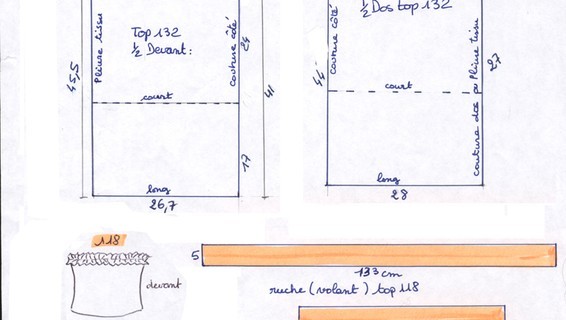 Top 132
½ Devant:
Pliure tissu
couture côté
45,5
24
41
court
17
long
26,7
½ Dos top 132
couture côté
44
court
27
couture dos ou Pliure tissu
long
28
118
devant
5
133 cm
ruche (volant) top 118